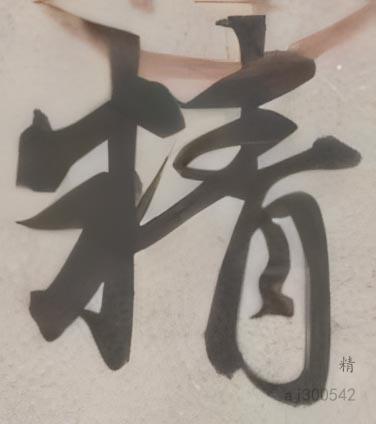 精
精
aj300542